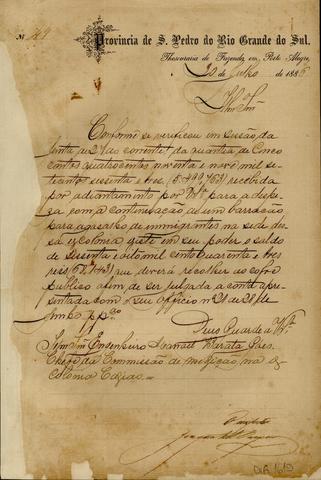 Provincia de S. Pedro do Rio Grande do Sul.
Thesouraria de Fazenda, em Porto Alegre,
30 de Julho de 1886
Illmo Snr.
Conforme se verificou em sessão da
Junta de 27 do corrente, da quantia de Cinco
contos quatrocentos noventa e nove mil se-
tecentos sessenta e tres (5:499,763) recebida
por adiantamento por Vª para a despe-
za com a continuação de um barracão
para agasalho de immigrantes na séde
dessa ex Colonia existe em seu poder o saldo
de sessenta e oito mil cento quarenta e tres
reis (68,143) que deverá recolher ao cofre
publico afim de ser julgada a conta apre-
sentada com o seu officio nº 21 de 28 de
Junho p.pdo
Deus Guarde a Vª
Illmo Snr Engenheiro Manoel Barata Góes
Chefe da Commissão de medição na ex
Colonia Caxias.